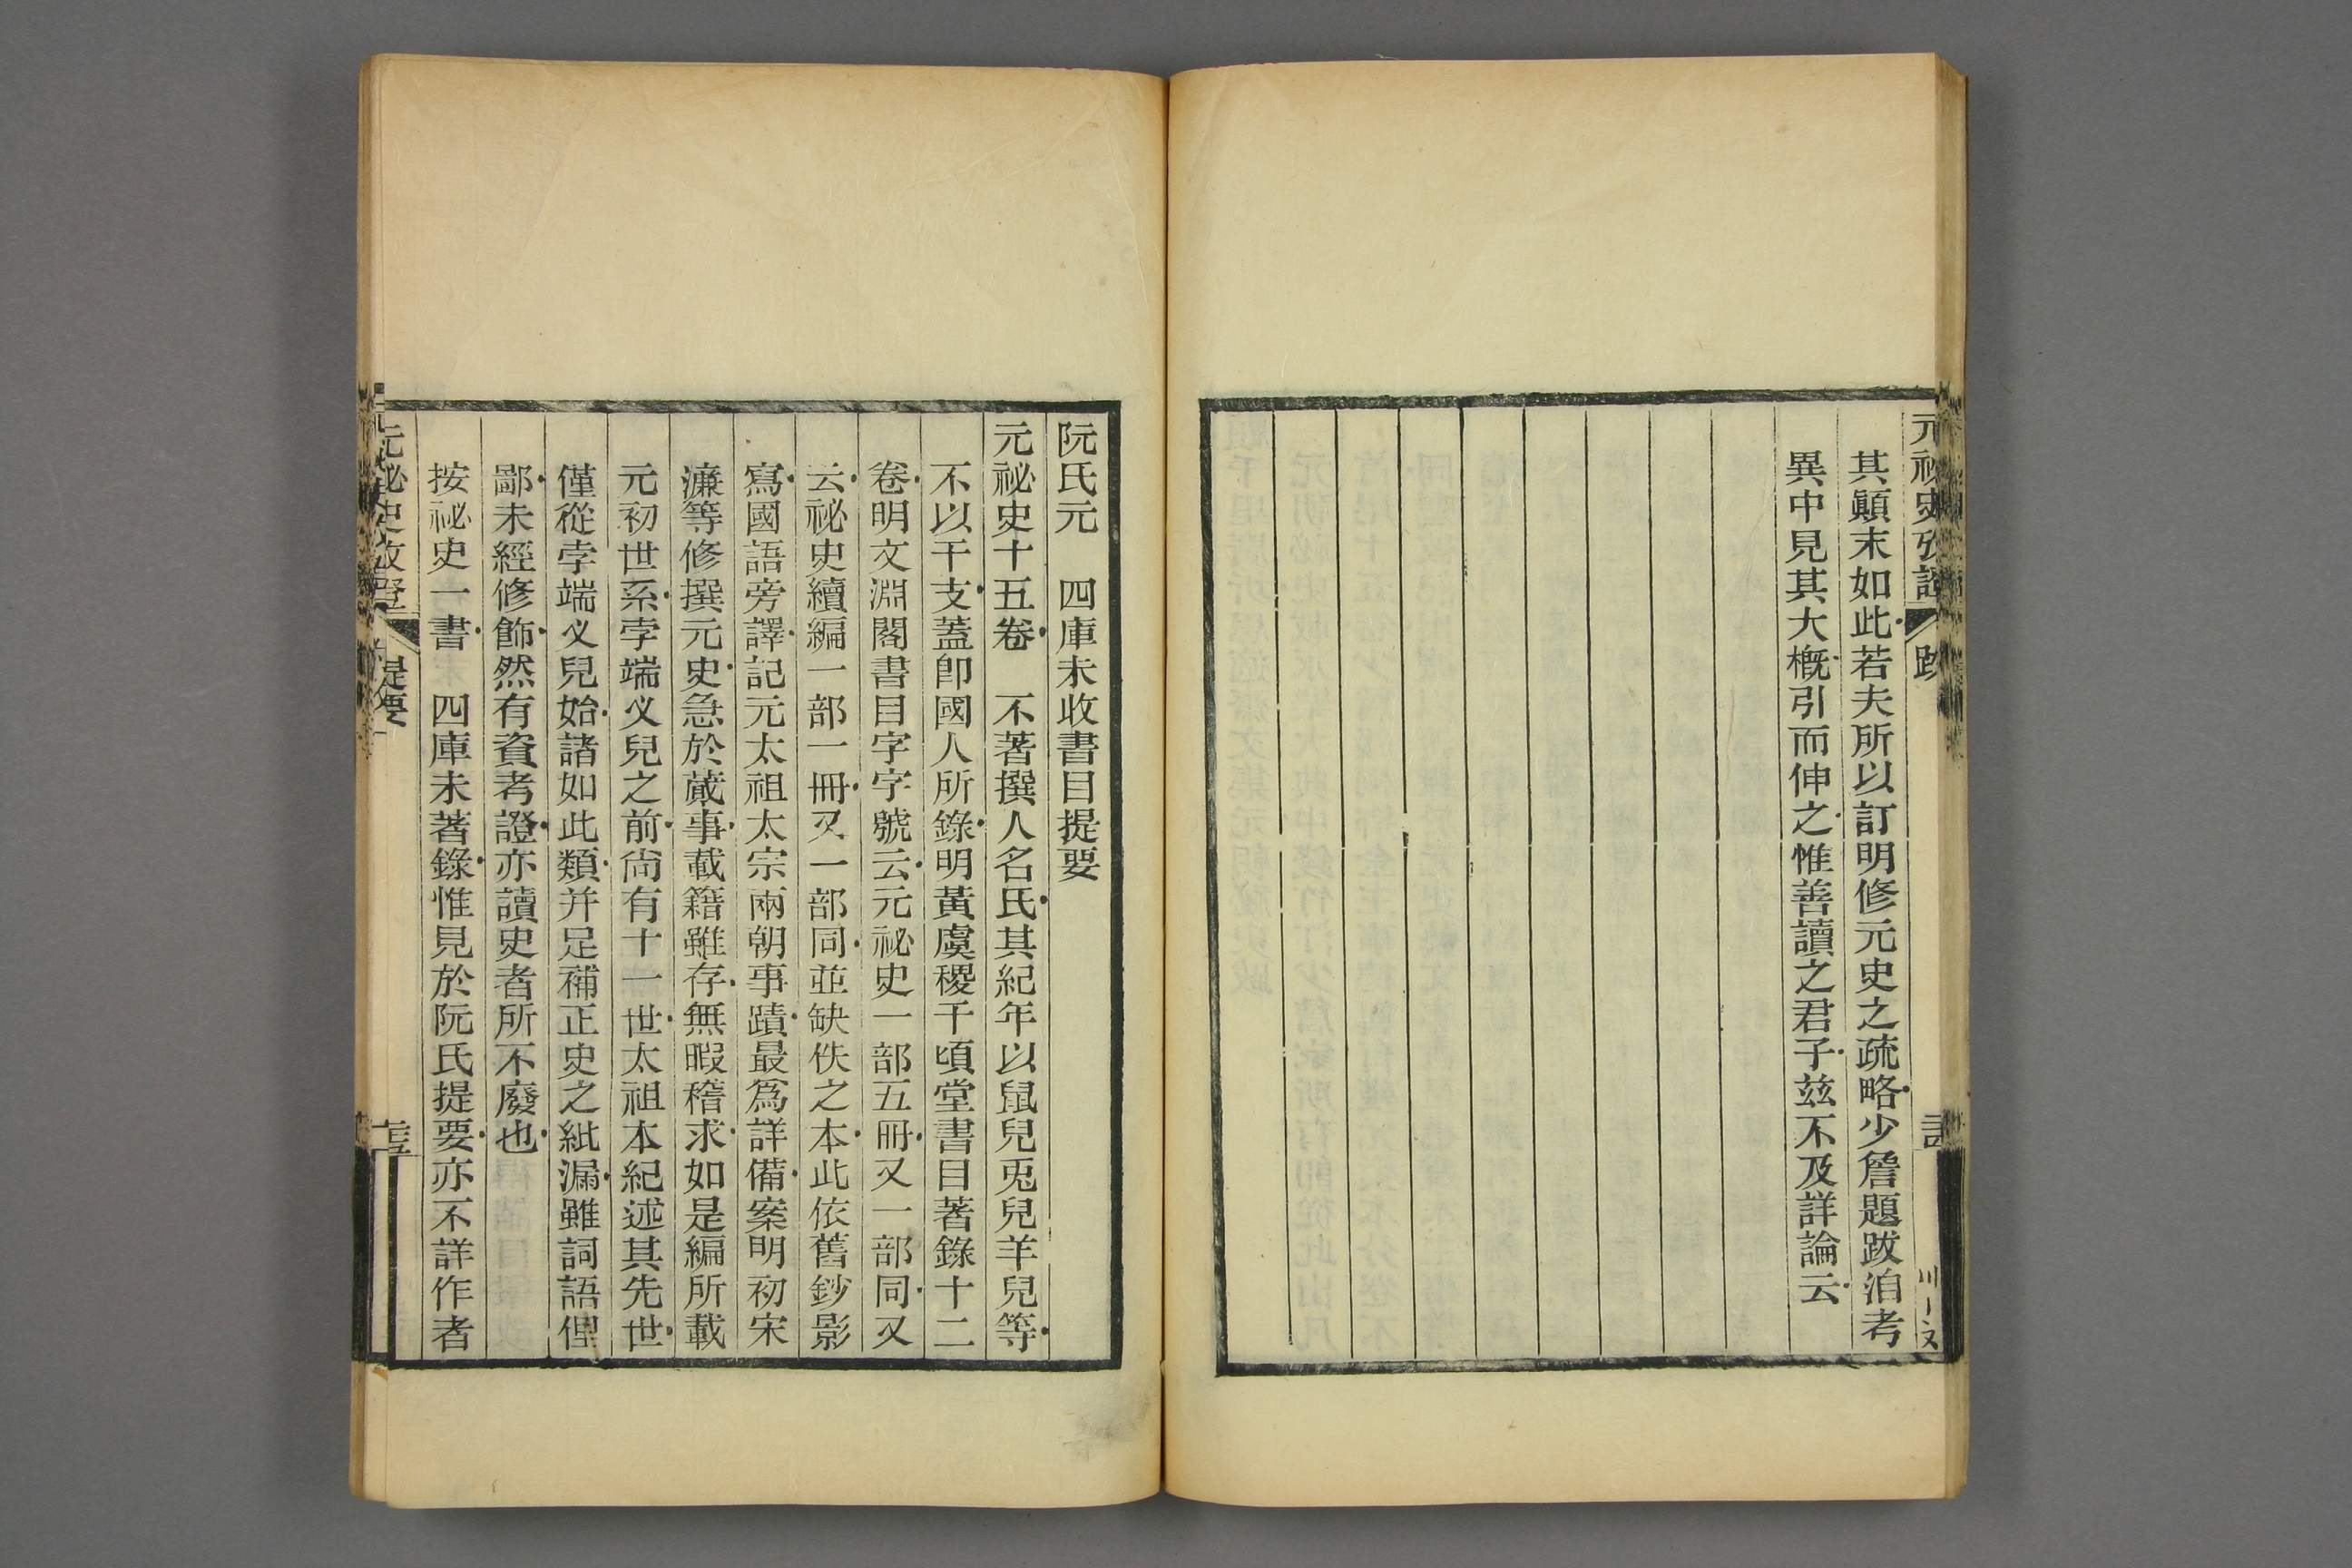 元祕史攷證 跋
其顚末如此若夫所以訂明修元史之疏略少詹題跋洎考
異中見其大槪引而伸之惟善讀之君子茲不及詳論云
阮氏元 四庫未收書目提要
元祕史十五卷 不著撰人名氏其紀年以鼠兒兎兒羊兒等
不以干支蓋卽國人所錄明黃虞稷千頃堂書目著錄十二
卷明文淵閣書目字字號云元祕史一部五冊又一部同又
云祕史續編一部一冊又一部同並缺佚之本此依舊鈔影
寫國語旁譯記元太祖太宗兩朝事蹟最爲詳備案明初宋
濂等修撰元史急於蕆事載籍雖存無暇稽求如是編所載
元初世系孛端义兒之前尙有十一世太祖本紀述其先世
僅從孛端义兒始諸如此類并足補正史之紕漏雖詞語俚
鄙未經修飾然有資考證亦讀史者所不廢也
按祕史一書 四庫未著錄惟見於阮氏提要亦不詳作者
元祕史攷證 提要